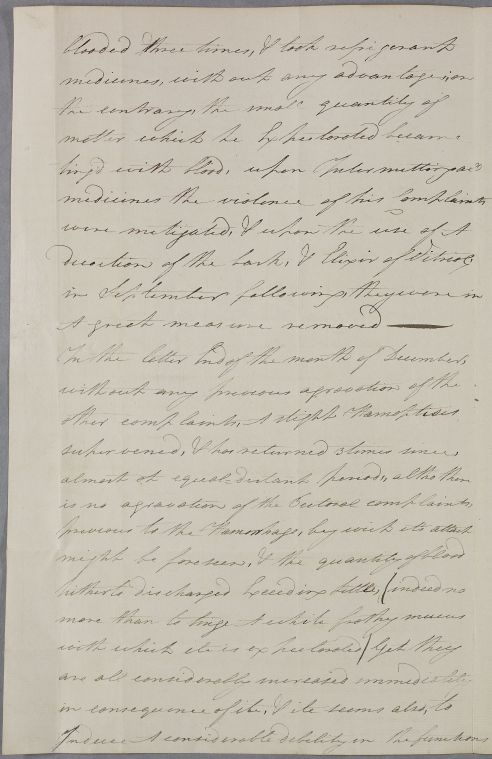 blooded three times, & took refrigerant
medicines, with out any advantage; on
the contrary, the small quantity of
matter which he Expectorated became
ting'd with blood, upon Intermitting
medicines the violence of his Complaints
were metigated, & upon the use of A
decoction of the bark, & Elixir of Vitriol,
in September following, they were in
A great measure removed
In the latter End of the month of December,
without any previous agravation of the
other complaints, A slight Hamoptisis
supervened, & has returned 3 times since,
almost at equal-distant periods, altho there
is no agravation of the Pectoral complaints,
previous to the Hamorhage, by wich its attack
might be foreseen, & the quantity of blood
hitherto discharged Exceeding little, (indeed no
more than to tinge A white frothy mucus
with which it is expectorated) yet they
are all considerably increased immediately
in consequence of it, & it seems also, to
Induce A considerable debility in the functions